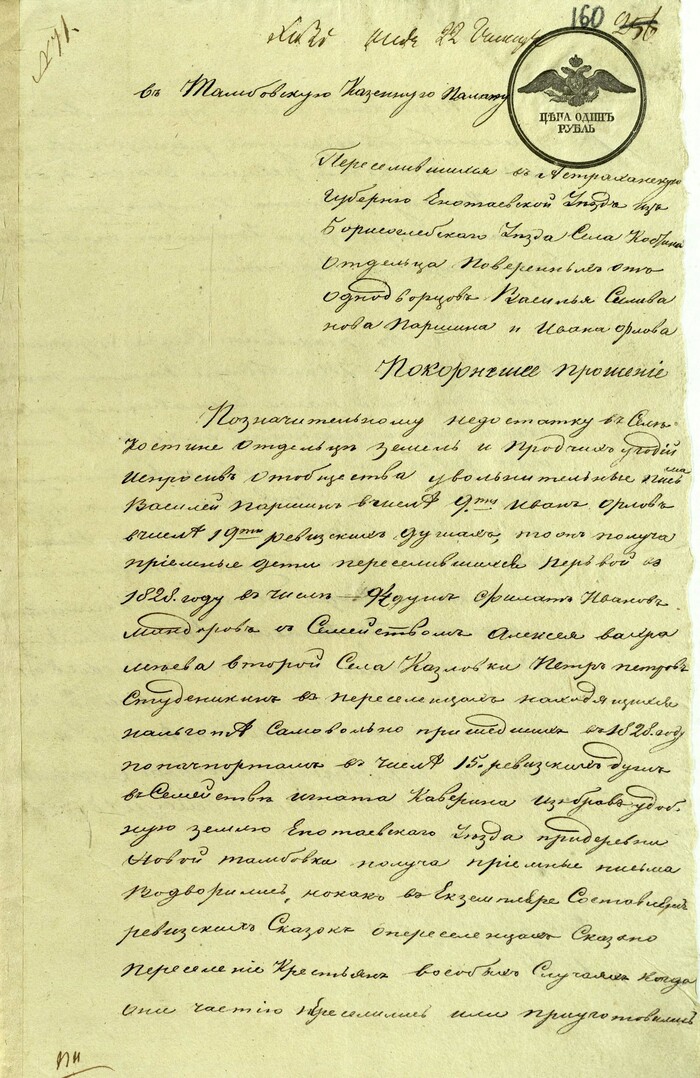 № 71.
22
160
въ Тамбовскую Казенную Палату
ЦѢНА ОДИНЪ
РУБЛЬ
Переселившихся въ Астраханскую
губернію Енотаевской Уездъ изъ
Борисоглебскаго Уезда Села Костина
отдельца Поверенныхъ отъ
однодворцовъ Василья Силива
нова Паршина и Ивана Орлова
Покорнешее прошеніе
Позначительному недостатку въ Селе
Костине отдельце земель и Протчихъ угодій
испросивъ отобщества увольнительные пись
ма
Василей Паршинъ вчисле 9ти Иванъ Орловъ
вчисле 19ти ревизскихъ душахъ, получа
пріемные дети переселившихся первой въ
1828. году въ числе душъ Филатъ Ивановъ
съ Семействомъ Алексея Вахра
меева второй Села Казловки Петръ петровъ
Студеникинъ въ переселенцахъ находящихся
нальготе Самовольно пришедшихъ въ 1828. году
попачпортамъ въ числе 15. ревизскихъ душъ
въ Семействе игната Каверина избравъ удоб-
ную землю Енотаевскаго Уезда придеревни
Новой тамбовка получа пріемные письма
Водворились, нокакъ въ Екземпляре Составленія
ревизскихъ Сказокъ опереселенцахъ Сказано
переселеніе Крестьянъ вособыхъ Случаяхъ когда
они частію переселились или приуготовились